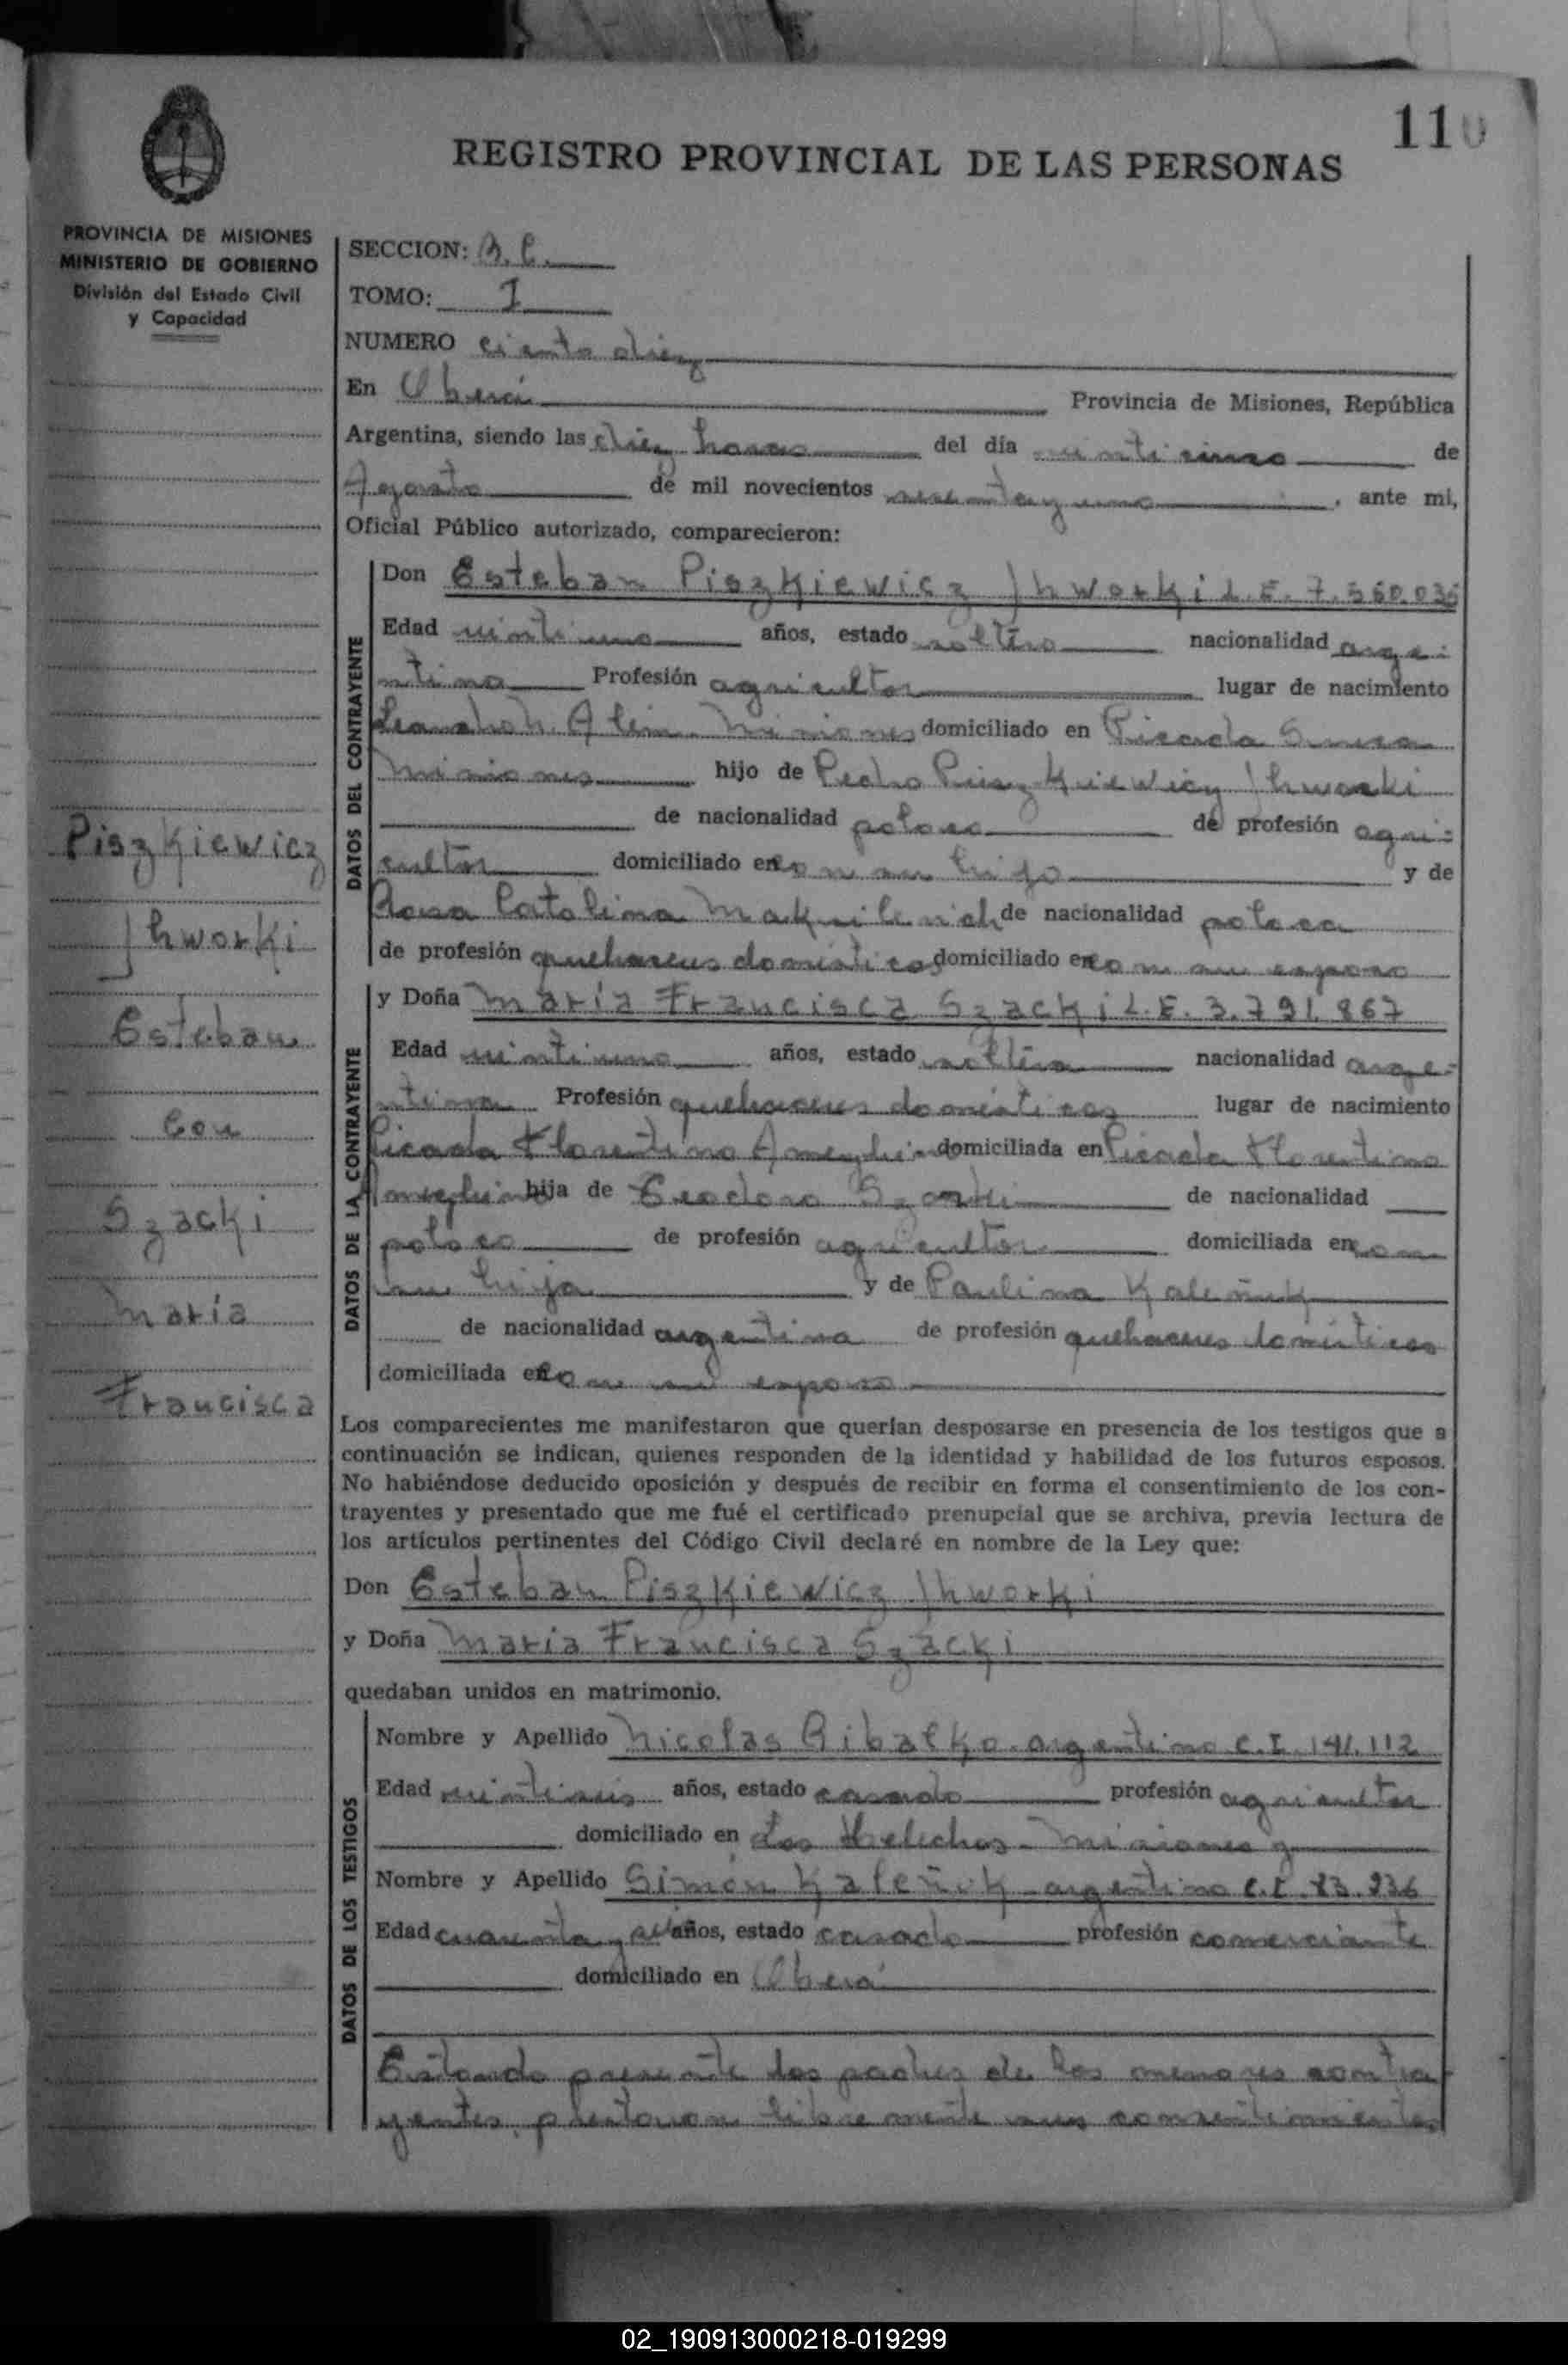 110
REGISTRO PROVINCIAL DE LAS PERSONAS
PROVINCIA DE MISIONES
MINISTERIO DE GOBIERNO
División del Estado Civil
y Capacidad
SECCION:
TOMO: I
NUMERO ciento diez
En Oberá Provincia de Misiones, República
Argentina, siendo las diez horas del día veinticinco de
Agosto de mil novecientos sesenta y uno, ante mi,
Oficial Público autorizado, comparecieron:
DATOS DEL CONTRAYENTE
Don Esteban Piszkiewicz Jhworki L.E. 7.560.035
Edad veintiuno años, estado soltero nacionalidad arge-
ntina Profesión agricultor lugar de nacimiento
Leandro N. Alem Misiones domiciliado en Picada
Misiones hijo de Pedro Piszkiewicz Jhworki
de nacionalidad polaco de profesión agri-
cultor domiciliado en con su hijo y de
Rosa Catalina de nacionalidad polaca
de profesión quehaceres domésticos domiciliado en con su esposo
DATOS DE LA CONTRAYENTE
y Doña María Francisca Szacki L.E. 3.791.867
Edad veintiuno años, estado soltera nacionalidad arge-
ntina Profesión quehaceres domésticos lugar de nacimiento
Picada Florentino Ameghino domiciliada en Picada Florentino
Ameghino hija de Teodoro Szacki de nacionalidad
polaco de profesión agricultor domiciliada en con
su hija y de Paulina Kaleñuk
de nacionalidad argentina de profesión quehaceres domésticos
domiciliada en con su esposo
Piszkiewicz
Jhworki
Esteban
Con
Szacki
María
Francisca
Los comparecientes me manifestaron que querían desposarse en presencia de los testigos que a
continuación se indican, quienes responden de la identidad y habilidad de los futuros esposos.
No habiéndose deducido oposición y después de recibir en forma el consentimiento de los con-
trayentes y presentado que me fué el certificado prenupcial que se archiva, previa lectura de
los artículos pertinentes del Código Civil declaré en nombre de la Ley que:
Don Esteban Piszkiewicz Jhworki
y Doña Maria Francisca Szacki
quedaban unidos en matrimonio.
DATOS DE LOS TESTIGOS
Nombre y Apellido Nicolas Ribalko argentino C.I. 141.112
Edad veintiseis años, estado casado profesión agricultor
domiciliado en Los Helechos - Misiones y
Nombre y Apellido Simón Kaleñuk argentino C.I. 83.936
Edad cuarenta y años, estado casado profesión comerciante
domiciliado en Oberá
Estando presente los padres de los menores contra-
yentes, prestaron libremente sus consentimientos
02_190913000218-019299